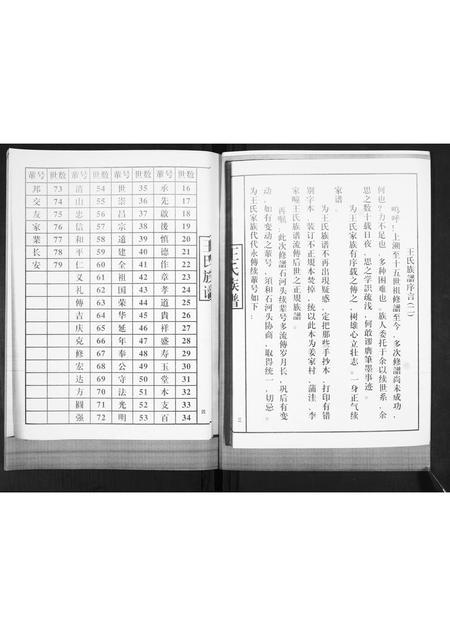 王氏族譜序言(二)
呜呼!上溯至十五世祖修譜至今,多次修譜尚未成功,
何也?力不足也,多种困难也,族人委托于余以续世系,余
思之数十载日夜,思之学识疏浅,何敢谬膺筆墨事迹。
为王氏家族有序载之傳之,树雄心立壮志。一身正气续
家谱
王氏族谱不再出現疑惑,定把那些手抄本,打印有错
别字本,装订不正規本焚掉,统以此本为姜家村,蒲洼,李
家疃王氏族谱流傳后世之正規族譜。
再嘱,此次修譜石河头续辈号多流傳岁月长,巩后有变
动,如有变动之輩号,须和石河头协商,取得统一,切忌。
为王氏家族代代永傳续輩号如下:
王氏族谱
三
王氏族谱
四
輩号 世数 輩号 世数 輩号 世数 輩号 世数
邦 73 清 54 世 35 承 16
交 74 山 55 崇 36 先 17
友 75 忠 56 昌 37 啟 18
家 76 信 57 宗 38 後 19
業 77 和 58 道 39 慎 20
长 78 平 59 建 40 德 21
安 79 仁 60 全 41 作 22
义 61 祖 42 章 23
礼 62 国 43 孝 24
傳 63 荣 44 道 25
吉 64 华 45 貴 26
庆 65 延 46 祥 27
克 66 年 47 盛 28
修 67 奉 48 寿 29
宏 68 公 49 玉 30
达 69 守 50 堂 31
方 70 法 51 本 32
圆 71 光 52 支 33
强 72 明 53 百 34